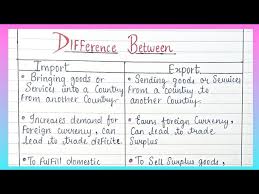 Difference Between
Import
Export
• Bringing goods or
Services into a Country
From another Country.
• Sending goods or Services
From a country to
another Country.
• Increases demand for
Foreign currency, can
lead to trade deficite.
• Earns foreign Currency,
Can lead to trade
Surplus
• To Fulfill domestic
• To Sell Surplus goods,